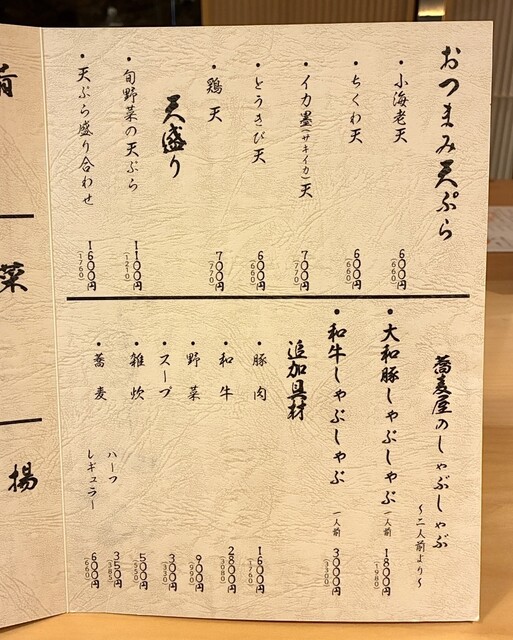 おつまみ天ぷら
・小海老天 600円 (660)
・ちくわ天 600円 (660)
・イカ墨(サキイカ)天 700円 (770)
・とうきび天 600円 (660)
・鶏天 700円 (770)
天盛り
・旬野菜の天ぷら 1100円 (1210)
・天ぷら盛り合わせ 1600円 (1760)
蕎麦屋のしゃぶしゃぶ
〜二人前より〜
・大和豚しゃぶしゃぶ 一人前 1800円 (1980)
・和牛しゃぶしゃぶ 一人前 3000円 (3300)
追加具材
・豚肉 1600円 (1760)
・和牛 2800円 (3080)
・野菜 900円 (990)
・スープ 300円 (330)
・雑炊 500円 (550)
・蕎麦 ハーフ 350円 (385)
レギュラー 600円 (660)
肴
菜
揚